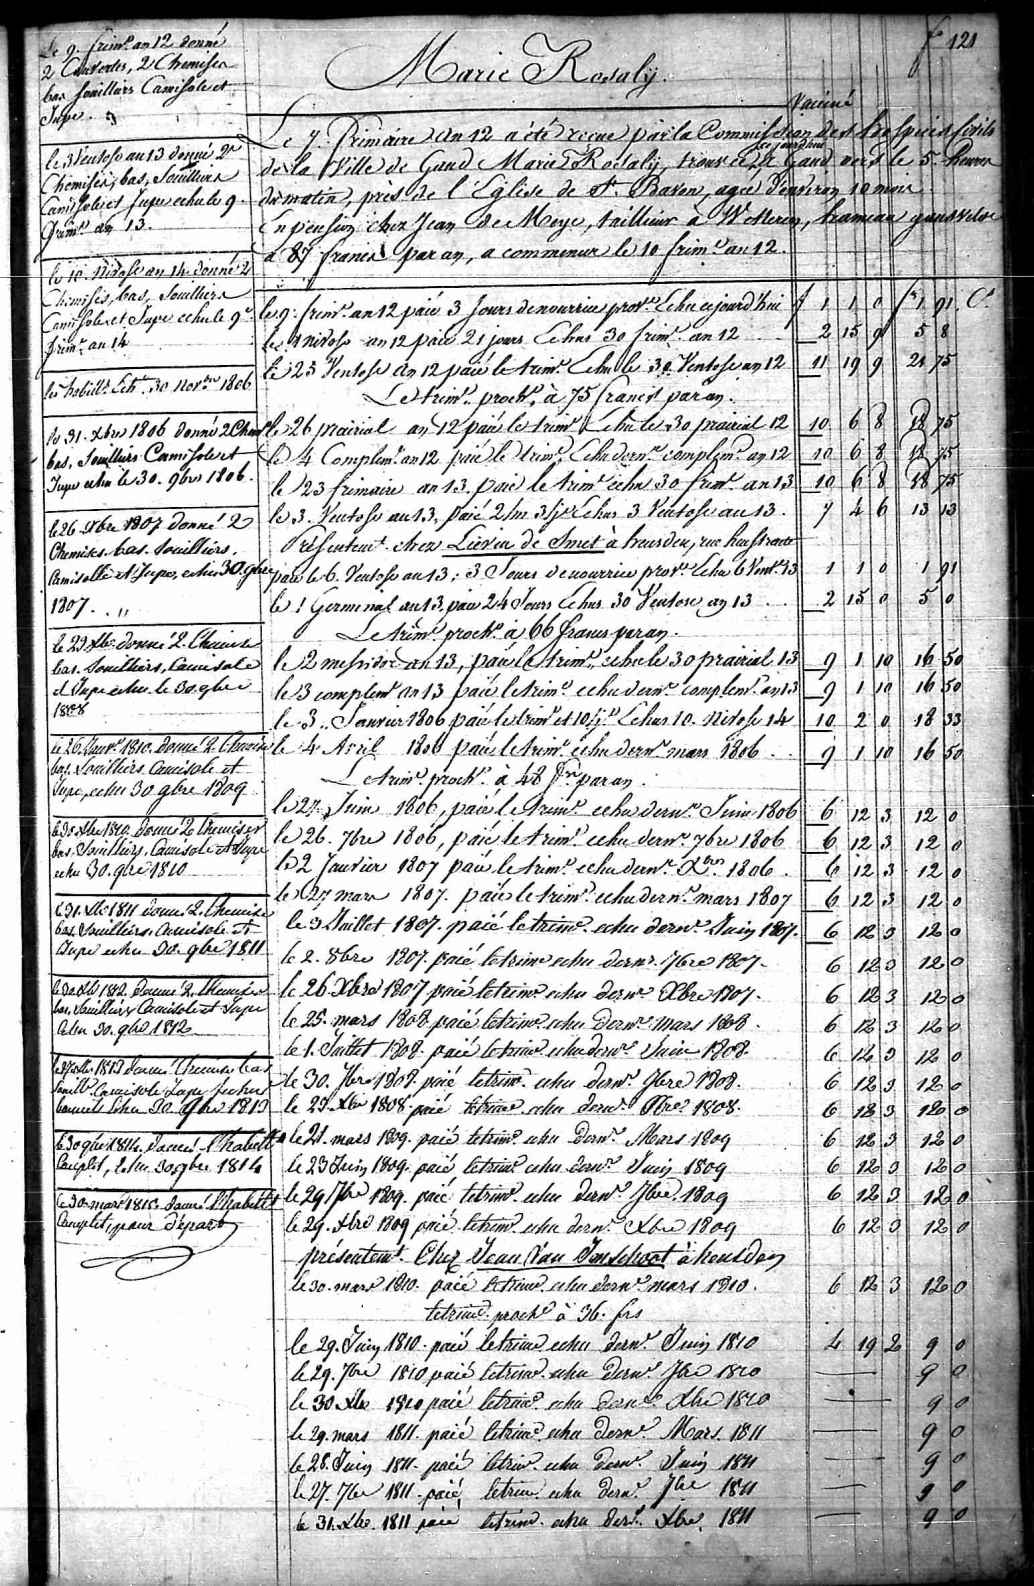 fº 121
Marie Rosalij.
Vaciné
Le 7. Frimaire an 12 a été reçue par la Commission des hospices Civils
ce jourd'hui
de la Ville de Gand Marie Rosalij, trouvée à Gand vers le 5. heures
du matin, près de l'Eglise de St. Bavon, agée d'environ 10 mois
En pension chez Jean De Meye, tailleur à Wetteren, hameau
à 87 francs par an, a commencer le 10 frimre an 12.
le 9. frimre an 12 paié 3 Jours de nourrice provre Echu cejourd'hui f 1 1 0 fr 1 91 Cs
le 1 nivose an 12 paié 21 jours Echus 30 frimre an 12 2 15 9 5 8
le 23 Ventose an 12 paié le trimre Echu le 30 Ventose an 12 11 19 9 21 75
Le trimre prochn à 75 francs par an.
le 26 prairial an 12 paié le trimre Echu le 30 prairial 12 10 6 8 18 75
le 4 Complemre an 12 paié le trimre Echu dernr complemre an 12 10 6 8 18 75
le 23 frimaire an 13 paié le trimre echu 30 frimre an 13 10 6 8 18 75
le 3. Ventose an 13, paié 2 m 3 jrs Echus 3 Ventose an 13. 7 4 6 13 13
Présentemt chez Lieven de Smet à heusden, rue
paié le 6. Ventose an 13, 3 Jours de nourrice provre Echu 6 Vent. 13 1 1 0 1 91
le 1 Germinal an 13, paié 24 Jours Echus 30 Ventose an 13 2 15 0 5 0
Le trimre prochn à 66 francs par an.
le 2 messidor an 13, paié le trimre echu le 30 prairial 13 9 1 10 16 50
le 3 complemre an 13 paié le trimre echu dernr complemre an 13 9 1 10 16 50
le 3. Janvier 1806 paié le trimre et 10 jrs Echus 10. Nivose 14 10 2 0 18 33
le 4 Avril 1806 paié le trimre echu dernr mars 1806 9 1 10 16 50
Le trimre prochn à 48 frs par an.
le 27 Juin 1806, paié le trimre echu dernr Juin 1806 6 12 3 12 0
le 26. 7bre 1806, paié le trimre echu dernr 7bre 1806 6 12 3 12 0
le 2 Janvier 1807 paié le trimre echu dernr Xbre 1806 6 12 3 12 0
le 27 mars 1807. paié le trimre echu dernr mars 1807 6 12 3 12 0
le 3 Juillet 1807. paié le trimre echu dernr Juin 1807. 6 12 3 12 0
le 2. 8bre 1807 paié le trimre echu dernr 7bre 1807. 6 12 3 12 0
le 26 Xbre 1807 paié le trimre echu dernr Xbre 1807. 6 12 3 12 0
le 25. mars 1808 paié le trimre echu dernr mars 1808. 6 12 3 12 0
le 1. Juillet 1808 paié le trimre echu dernr Juin 1808. 6 12 3 12 0
le 30. 7bre 1808. paié le trimre echu dernr 7bre 1808. 6 12 3 12 0
le 29 Xbre 1808 paié le trimre echu dernr Xbre 1808. 6 12 3 12 0
le 21. mars 1809. paié le trimre echu dernr Mars 1809 6 12 3 12 0
le 23 Juin 1809. paié le trimre echu dernr Juin 1809 6 12 3 12 0
le 29 7bre 1809. paié le trimre echu dernr 7bre 1809 6 12 3 12 0
le 29. Xbre 1809 paié le trimre echu dernr Xbre 1809 6 12 3 12 0
présentemt Chez Jean Van Imschoot à heusden
le 30. mars 1810. paié le trimre echu dernr mars 1810. 6 12 3 12 0
le trimre prochn à 36. frs
le 29. Juin 1810. paié le trimre echu dernr Juin 1810 4 19 2 9 0
le 29. 7bre 1810 paié le trimre echu dernr 7bre 1810 — 9 0
le 30 Xbre 1810 paié le trimre echu dernr Xbre 1810 — 9 0
le 29. mars 1811. paié le trimre echu dernr Mars. 1811 — 9 0
le 28. Juin 1811. paié le trimre echu dernr Juin 1811 — 9 0
le 27. 7bre 1811. paié le trimre echu dernr 7bre 1811 — 9 0
le 31. Xbre. 1811 paié le trimre echu dernr Xbre. 1811 — 9 0
Le 9. frimre an 12 donné
2 Couvertes, 2 Chemises
bas souilliers Camisole et
Jupe.
le 3 Ventose an 13 donné 2
Chemises, bas, Souilliers
Camisole et Jupe echu le 9.
frimre an 13.
le 10. Nivose an 14. donné 2
Chemises, bas, Souilliers
Camisole et Jupe echu le 9e
frimre an 14
les habillts Echs 30 Novbre 1806
le 31. Xbre 1806 donné 2 Chem
bas, Souilliers Camisole et
Jupe echu le 30. 9bre 1806.
le 26 Xbre 1807 donné 2
Chemises bas. Souilliers.
Camisolle et Jupe, echu 30 9bre
1807.
le 29 Xbre. donné 2. Chemise
bas. Souilliers, Camisole
et Jupe echu le 30. 9bre
1808
le 26. Janvr 1810. donné 2. Chemise
bas. Souilliers. Camisole et
Jupe, echu 30 9bre 1809
le 30. Xbre 1810. donné 2 Chemises
bas. Souilliers, Camisole et Jupe
echu 30. 9bre 1810
le 31. Xbre 1811 donné 2. Chemise
bas. Souilliers. Camisole et
Jupe echu 30. 9bre 1811
le 30 Xbre 1812. donné 2. Chemise
bas. Souilliers Camisole et Jupe
echu 30. 9bre 1812
1813 donné Chemise bas
Souill. Camisole Jupe
echu 30. 9bre 1813
le 30 9bre 1814. donné l'habillt
Complet, echu 30 9bre 1814
le 30. mars 1815. donné l'habillt
Complet, pour départ